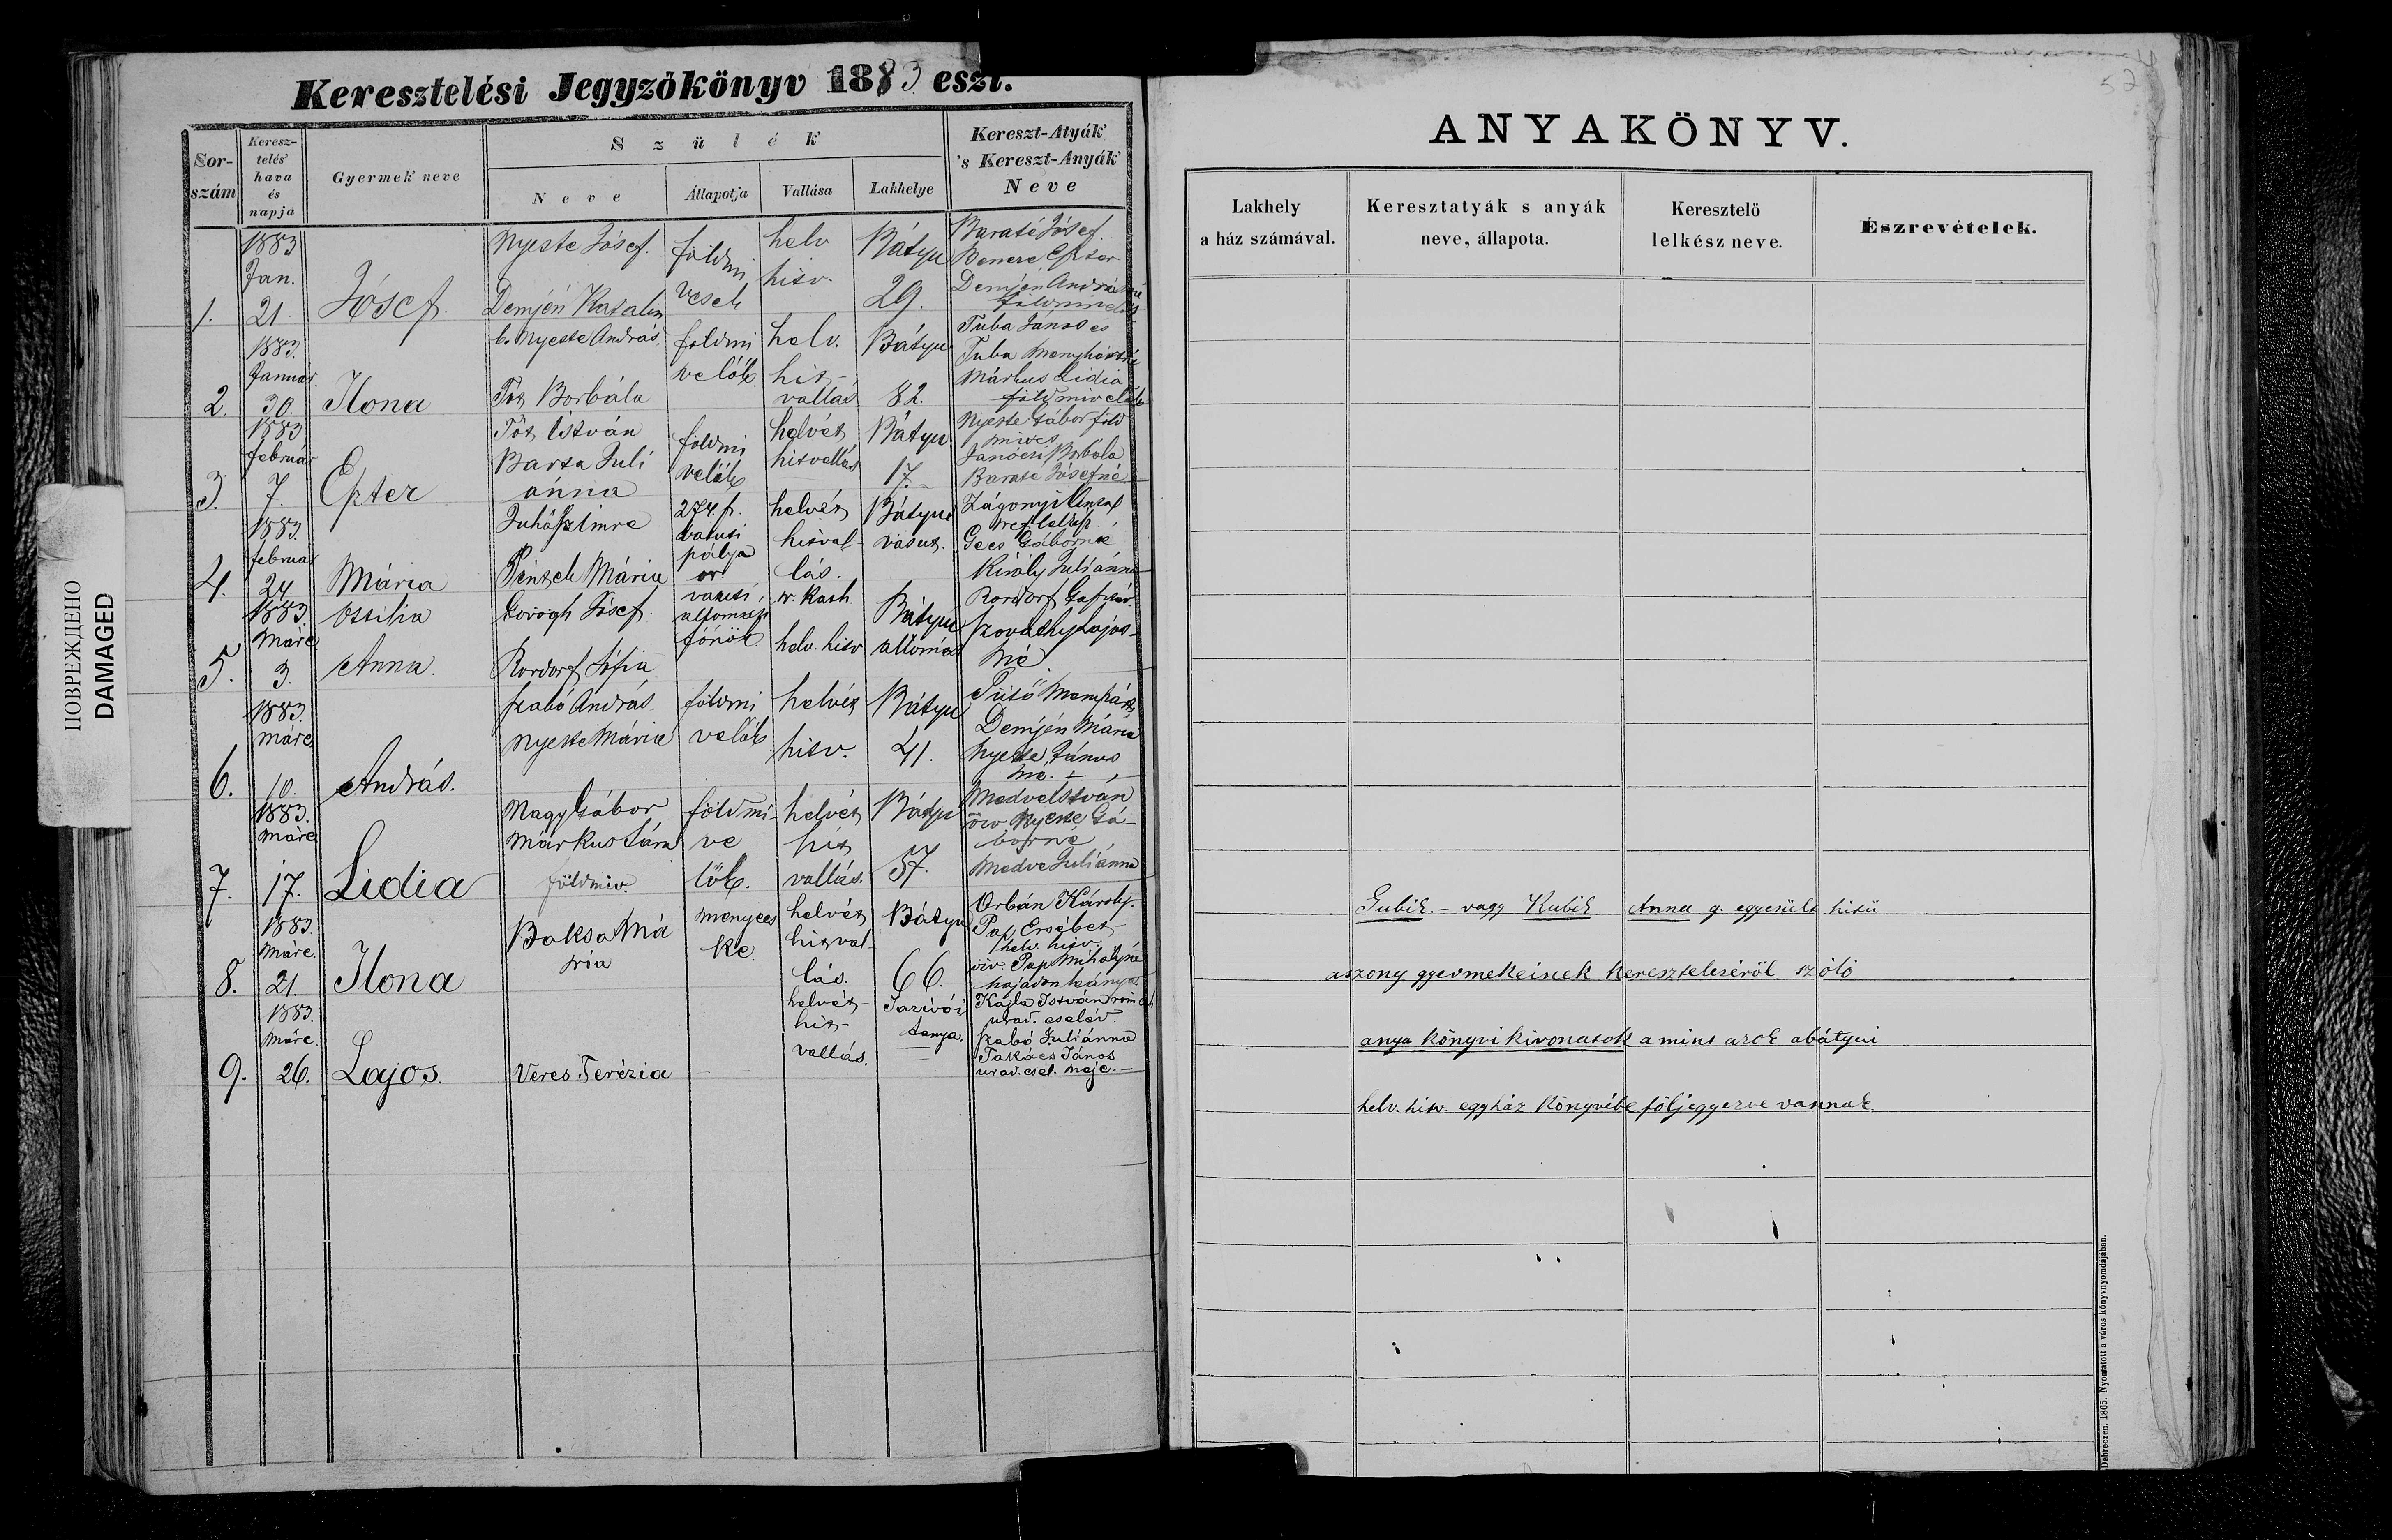 Keresztelési Jegyzőkönyv 1883 eszt.
Sor-szám
Keresz-telés' hava és napja
Gyermek neve
Szülék
Neve
Állapotja
Vallása
Lakhelye
Kereszt-Atyák 's Kereszt-Anyák Neve
1. 1883 Jan. 21 József.
Nyeste József.
Demjén Katalin
földmi
vesek
helv
hitv.
Bátyu
29.
Baráté József.
Eszter
Demjén Andrásné
földmivelők
2. 1883. Január. 30. Ilona
b. Nyeste András.
Tót Borbála
földmi
velők.
helv.
hit-
vallás
Bátyu
82.
Tuba János és
Tuba Menyhértné
Márkus Lidia
földmivelők
3. 1883 február 7. Eszter
Tót István
Barta Juli
ánna
földmi
velők
helvét
hitvallás
Bátyu
17.
Nyeste Gábor föld
mives
Janócsi Borbála
Baráté Józsefné
4. 1883. február 24. Mária
Juhász Imre
Péntek Mária
274. sz.
vasuti
pálya
őr.
helvét
hitval-
lás.
Bátyu
vasut.
Zágonyi Antal
ref lelkész
Gecs Gáborné
Király Juliánna
5. 1883. Márc 3. Ottilia
Anna.
Görögh József.
Rordorf Zsófia
vasuti
állomási
főnök
r. kath.
helv. hitv
Bátyu
állomás
Rordorf Gusztáv.
Szovathy Lajos-
né
6. 1883. márc 10. András.
Szabó András.
Nyeste Mária
földmi
velők
helvét
hitv.
Bátyu
41.
Pütő Menyhért
Demjén Mária
Nyeste János
né. —
7. 1883. márc 17. Lidia
Nagy Gábor
Márkus Sára
földmiv.
földmi-
ve
lők.
helvét
hit
vallás.
Bátyu
57.
Medve István
özv Nyeste Gá-
borné
Medve Juliánna
8. 1883. Márc. 21 Ilona
Baksa Má
ria
menyecs
ke.
helvét
hitval-
lás.
Bátyu
66.
Orbán Károly.
Pap Ersébet-
helv. hitv.
özv. Pap Mihályné
hajadon leánya.
9. 1883. Márc. 26. Lajos.
Veres Terézia
helvét-
hit-
vallás.
tanya.
Kajla István rom cath
urad. cseléd.
Szabó Juliánna
Takács János
urad. csel. neje. —
ПОВРЕЖДЕНО
DAMAGED
52
ANYAKÖNYV.
Lakhely a ház számával.
Keresztatyák s anyák neve, állapota.
Keresztelő lelkész neve.
Észrevételek.
Gubik. - vagy Kubik Anna g. egyesült hitü
aszony gyermekeinek kereszteléséröl szóló
anya könyvi kivonatok amint azok abátyui
helv. hitv. egyház könyvébe följegyezve vannak.
Debreczen. 1865. Nyomatott a város könyvnyomdájában.